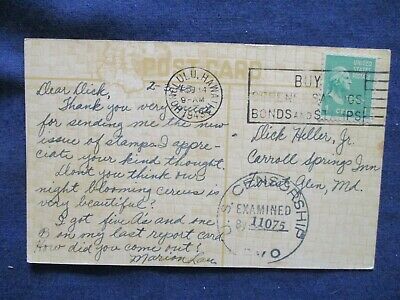 POSTCARD
HONOLULU, HAWAII
9-AM
BUY
DEFENSE SAVINGS
BONDS AND STAMPS
UNITED STATES
2-
Dear Dick,
Thank you very much
for sending me the new
issue of stamps I appre-
ciate your kind thought.
Don't you think our
night blooming cereus is
very beautiful?
I got five As and one
B on my last report card.
How did you come out?
Marion Lau
Dick Heller, Jr.
Carroll Spring Inn
Forest Glen, Md.
U.S. CENSORSHIP
EXAMINED
By 11075